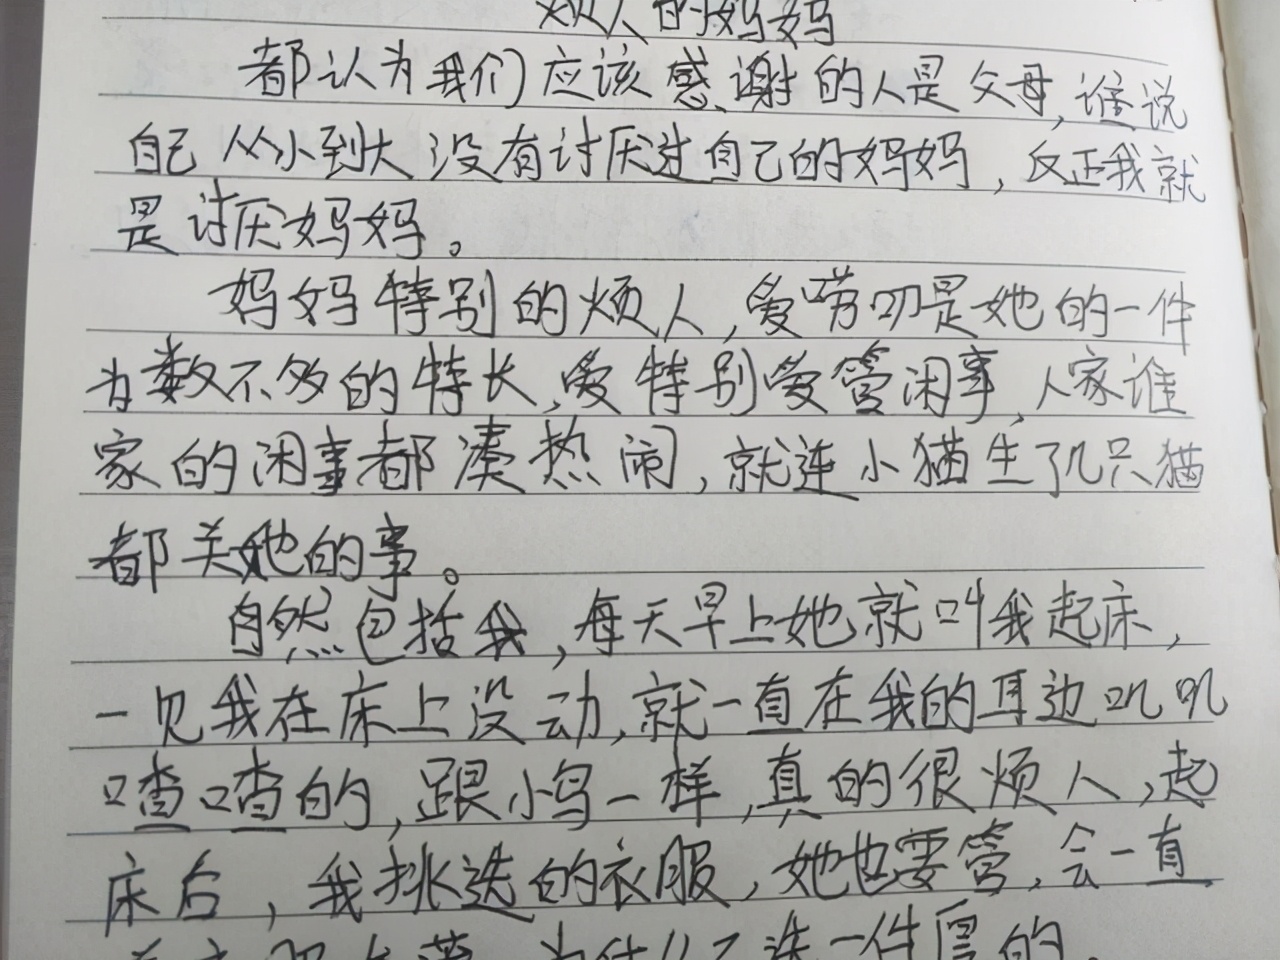 烦人的妈妈
都认为我们应该感谢的人是父母,谁说
自己从小到大没有讨厌过自己的妈妈,反正我就
是讨厌妈妈。
妈妈特别的烦人,爱唠叨是她的一件
为数不多的特长,爱特别爱管闲事,人家谁
家的闲事都凑热闹,就连小猫生了几只猫
都关她的事。
自然包括我,每天早上她就叫我起床,
一见我在床上没动,就一直在我的耳边叽叽
喳喳的,跟小鸟一样,真的很烦人,起
床后,我挑选的衣服,她也要管,会一直
为什么不选一件厚的